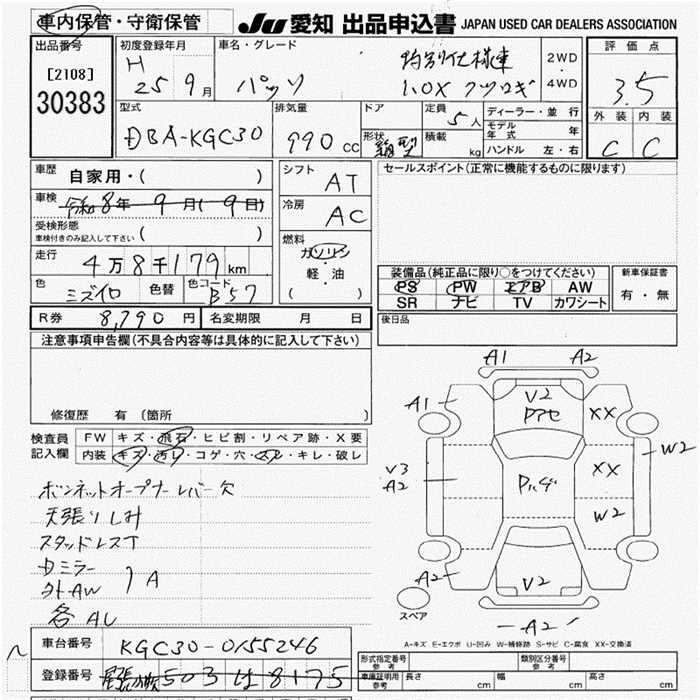 車内保管・守衛保管
JU 愛知 出品申込書 JAPAN USED CAR DEALERS ASSOCIATION
出品番号
[2108]
30383
初度登録年月
H 25 9月
車名・グレード
パッソ
特別仕様車
1.0X クツロギ
2WD
・
4WD
評価点
3.5
外装 内装
C C
型式
DBA-KGC30
排気量
990 cc
ドア
形状
箱型
定員
5人
積載
kg
ディーラー・並行
モデル年式 年
ハンドル 左・右
車歴 自家用・( )
車検 令和8年9月(9日)
受検形態
車検付きのみ記入して下さい ( )
走行 4万8千179km
色 ミズイロ 色替 色コード B57
シフト AT
冷房 AC
燃料
ガソリン
・
軽・油
( )
セールスポイント(正常に機能するものに限ります)
装備品(純正品に限り○をつけてください)
PS PW エアB AW
SR ナビ TV カワシート
新車保証書
有・無
R券 8,790円 名変期限 月 日
後日品
注意事項申告欄(不具合内容等は具体的に記入して下さい)
修復歴 有 (箇所 )
検査員記入欄
FW キズ・飛石・ヒビ割・リペア跡・X要
内装 キズ・汚レ・コゲ・穴・スレ・キレ・破レ
ボンネットオープナーレバー欠
天張りしみ
スタッドレスT
Dミラー
外AW ) A
各AU
A1 A2
A1 V2 XX
アセ
W2
V3
A2
XX
W2
A2 V2
スペア
A2
A-キズ E-エクボ U-凹み W-補修跡 S-サビ C-腐食 XX-交換済
車台番号 KGC30-0155246
登録番号 尾張小牧503は8175
形式指定番号
参考
類別区分番号
参考
車庫証明用
参考
長さ cm 幅 cm 高さ cm